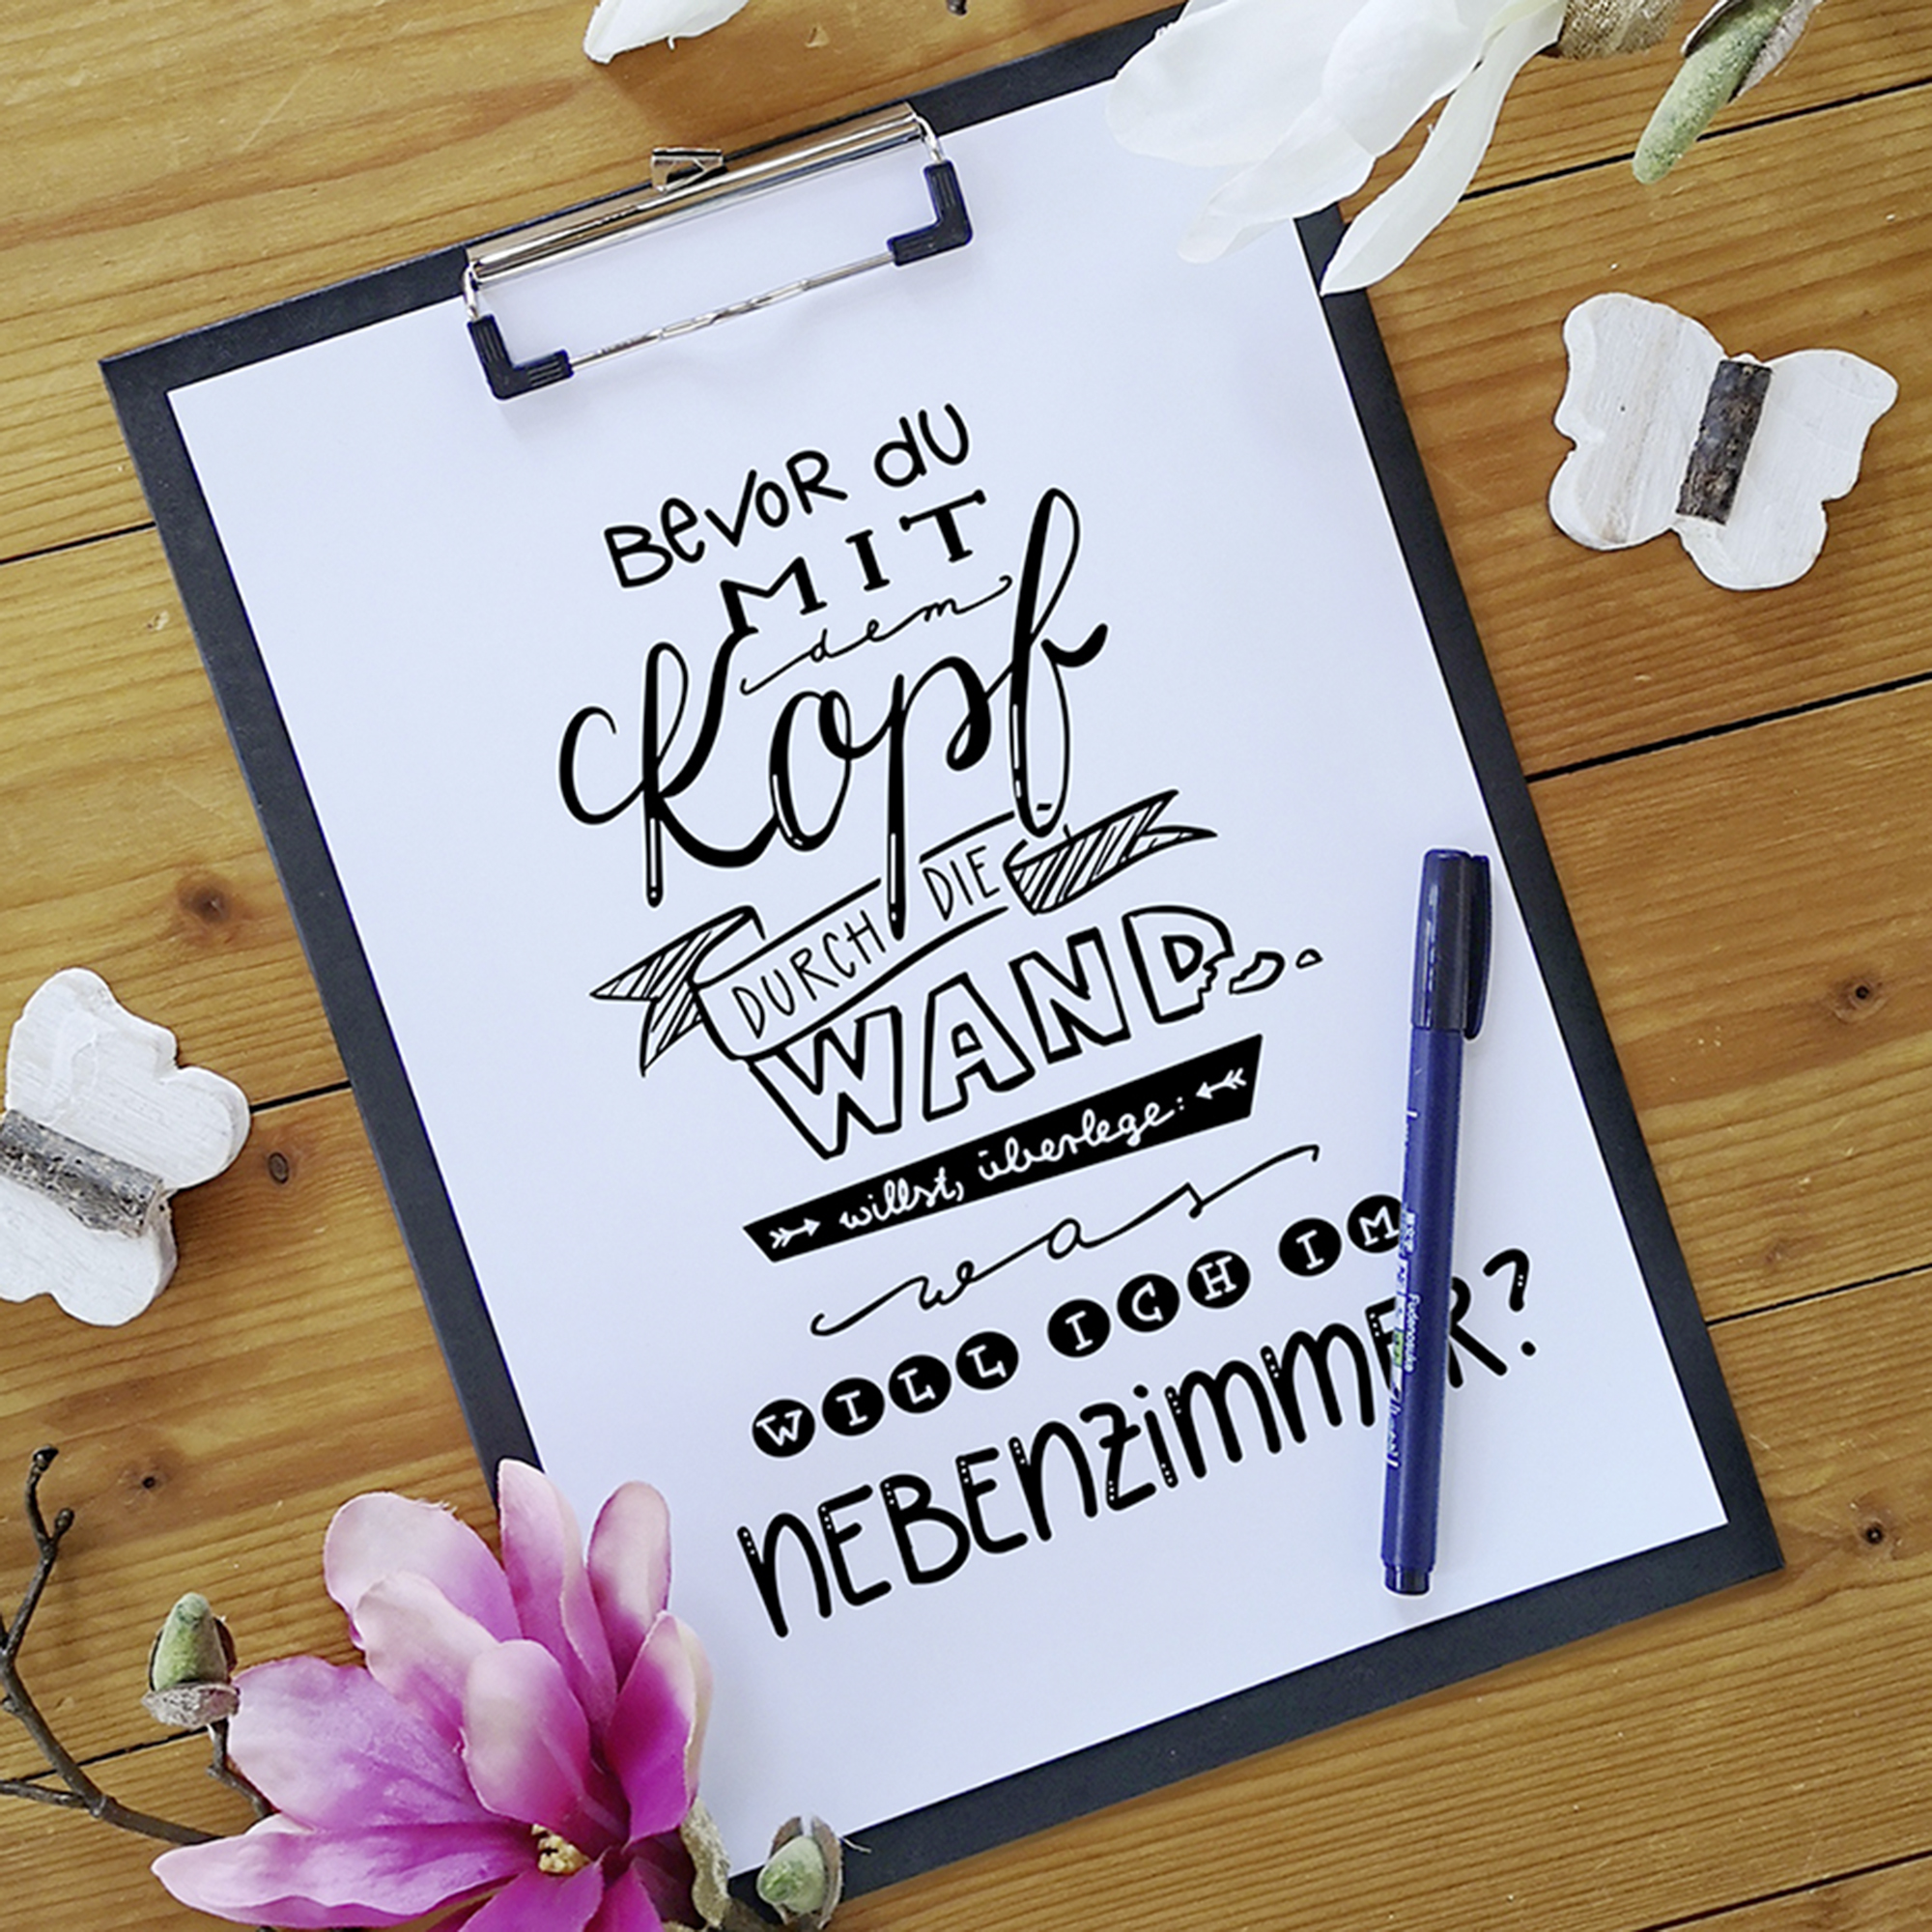 BeVOR dU
MIT
dem
Kopf
DURCH DIE
WAND
willst, überlege:
was
WILL ICH IM
NEBENZiMMER?
Fudenosuke